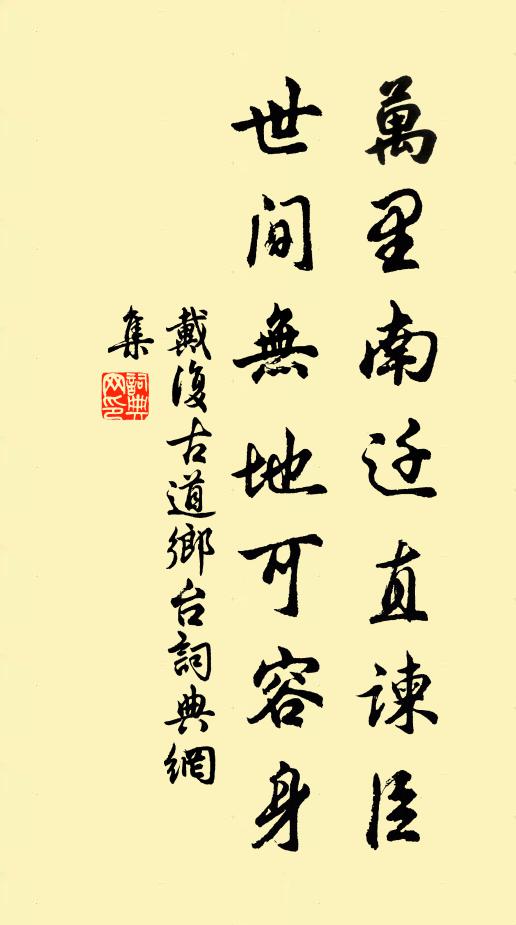 萬里南迁直諫臣
世间無地可容身
戴復古道鄉台詞典網
集
詞典
网印